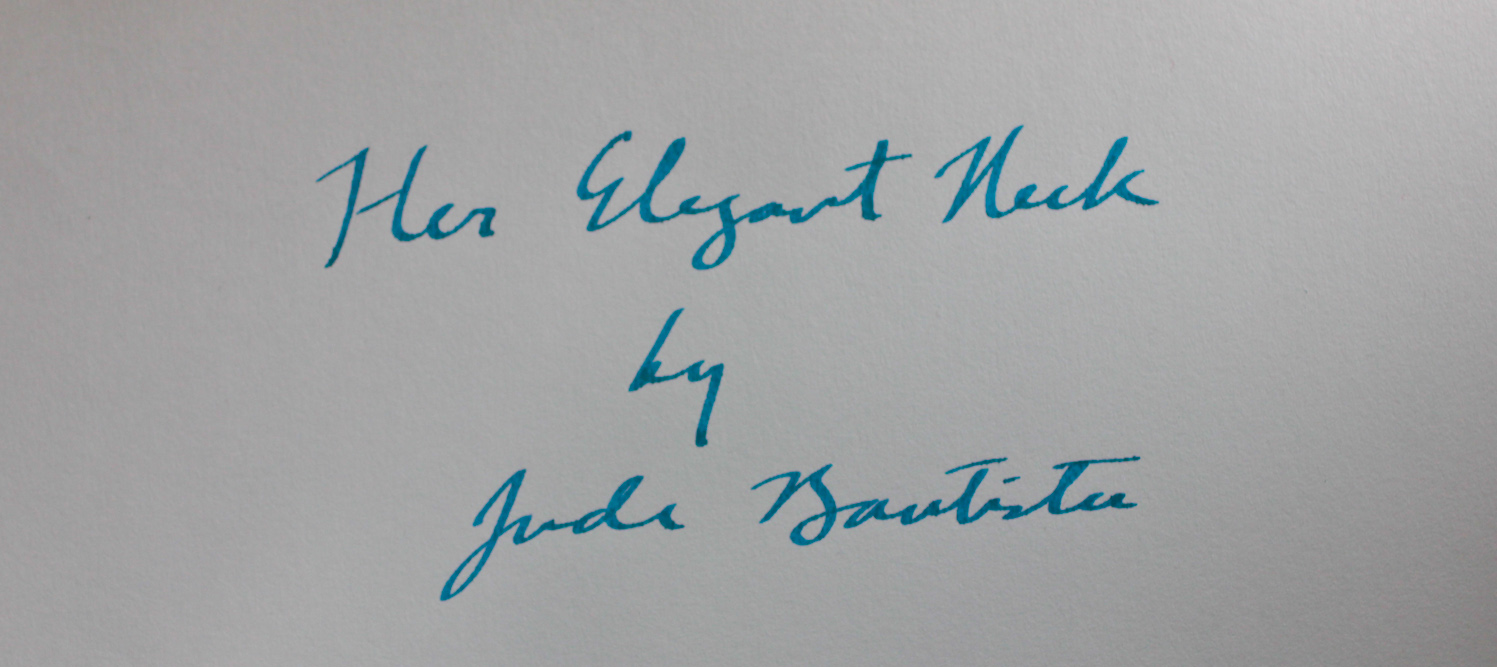 Her Elegant Neck
by
Jude Bautista